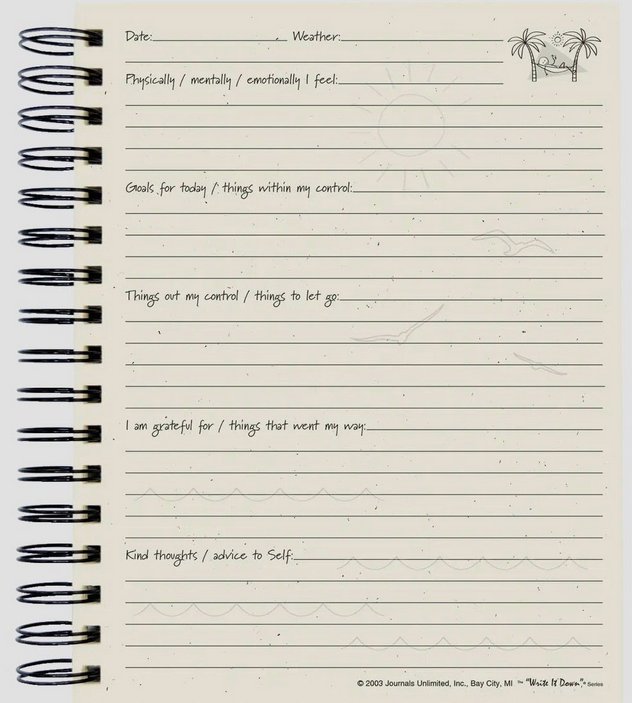 Date: Weather:
Physically / mentally / emotionally I feel:
Goals for today / things within my control:
Things out my control / things to let go:
I am grateful for / things that went my way:
Kind thoughts / advice to Self:
© 2003 Journals Unlimited, Inc., Bay City, MI ™ "Write It Down"® Series